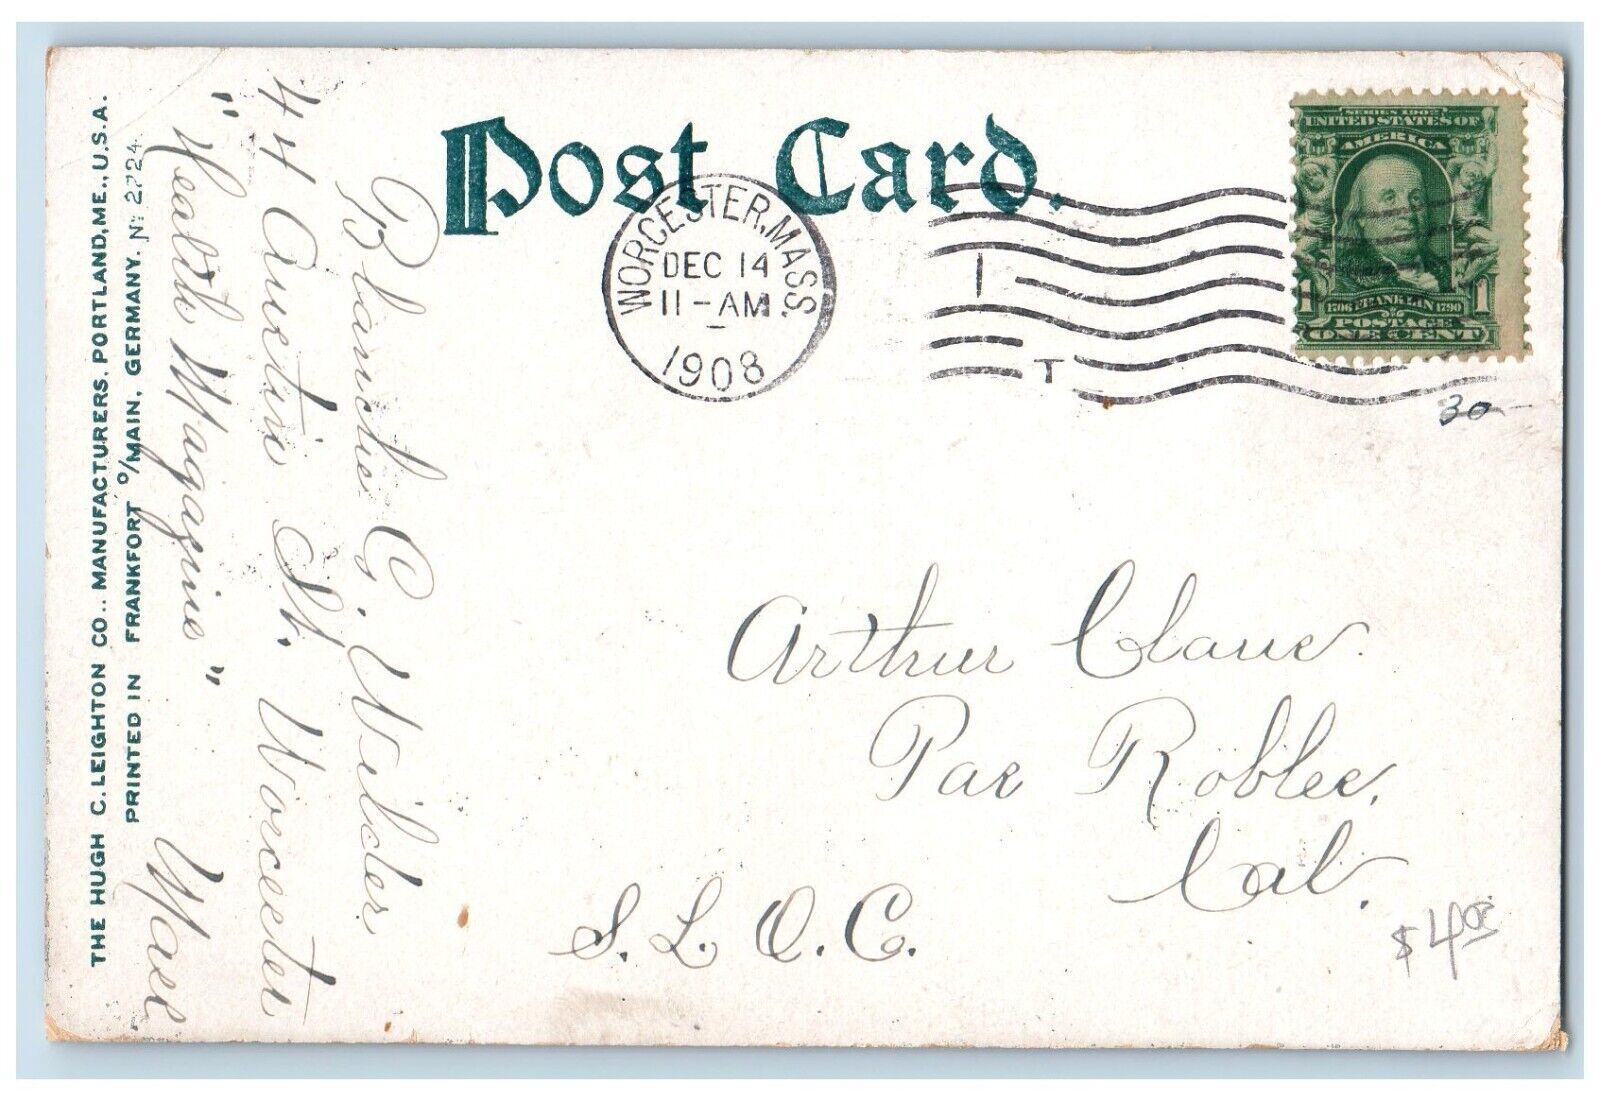 Post Card.
WORCESTER, MASS.
DEC 14
11-AM
1908
1
T
SERIES 1902
UNITED STATES OF
AMERICA
1706 FRANKLIN 1790
1 1
POSTAGE
ONE CENT
30-
Arthur Claus.
Pas Robles,
Cal.
S. L. O. C.
$4.00
Blanche G. Wilder
44 Austin St. Worcester
"Health Magazine" Mass
PRINTED IN FRANKFORT O/MAIN, GERMANY. No 2724.
THE HUGH C. LEIGHTON CO., MANUFACTURERS, PORTLAND, ME., U.S.A.